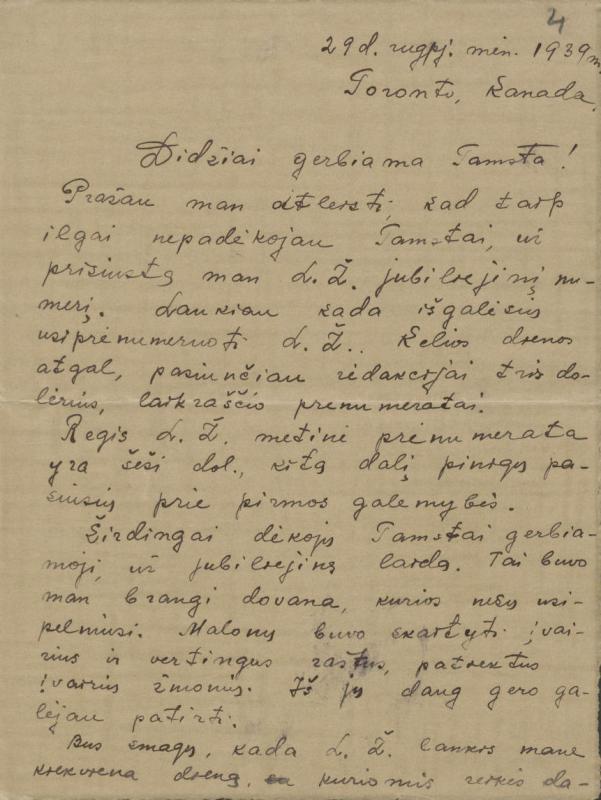 4
29 d. rugpj. mėn. 1939 m.
Toronto, Kanada.
Didžiai gerbiama Tamsta!
Prašau man atleisti, kad taip
ilgai nepadėkojau Tamstai, už
prisiųstą man L.Ž. jubiliejinį nu-
merį. Laukiau kada išgalėsiu
užsiprenumeruoti L.Ž.. Kelios dienos
atgal, pasiunčiau redakcijai tris do-
lerius, laikraščio prenumeratai.
Regis L.Ž. metinė prenumerata
yra šeši dol., kitą dalį pinigų pa-
siųsiu prie pirmos galemybės.
Širdingai dėkoju Tamstai gerbia-
moji, už jubiliejinę laidą. Tai buvo
man brangi dovana, kurios nesu užsi-
pelniusi. Malonu buvo skaityti įvai-
rius ir vertingus raštus, patiektus
įvairių žmonių. Iš jų daug gero ga-
lėjau patirti.
Bus smagu, kada L.Ž. lankys mane
kiekvieną dieną, kuriomis reikės da-